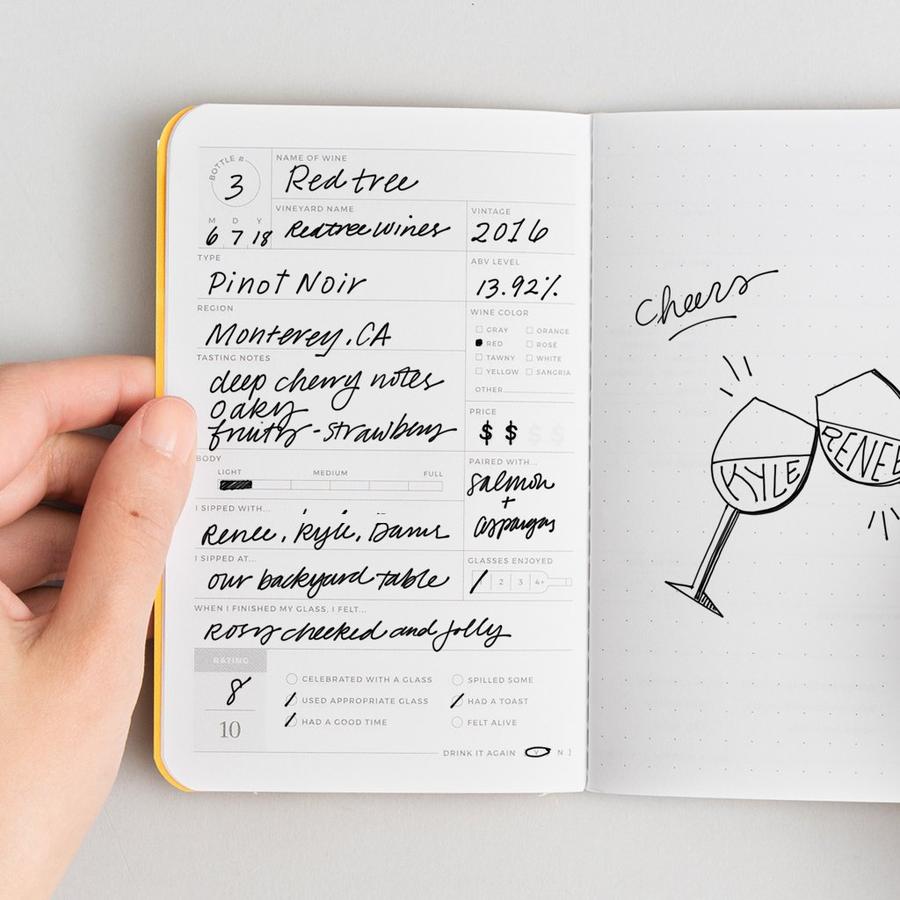 BOTTLE #
3
NAME OF WINE
Redtree
M D Y
6 7 18
VINEYARD NAME
Redtree Wines
VINTAGE
2016
TYPE
Pinot Noir
ABV LEVEL
13.92%
REGION
Monterey, CA
WINE COLOR
GRAY ORANGE
RED ROSÉ
TAWNY WHITE
YELLOW SANGRIA
OTHER
TASTING NOTES
deep cherry notes
oaky
fruity - strawberry
PRICE
$ $ $ $
BODY
LIGHT MEDIUM FULL
PAIRED WITH...
salmon
+
asparagus
I SIPPED WITH...
Renee, Kyle,
I SIPPED AT...
our backyard table
GLASSES ENJOYED
2 3 4+
WHEN I FINISHED MY GLASS, I FELT...
Rosy cheeked and jolly
RATING
8
10
CELEBRATED WITH A GLASS SPILLED SOME
USED APPROPRIATE GLASS HAD A TOAST
HAD A GOOD TIME FELT ALIVE
DRINK IT AGAIN Y N
Cheers
KYLE
RENEE